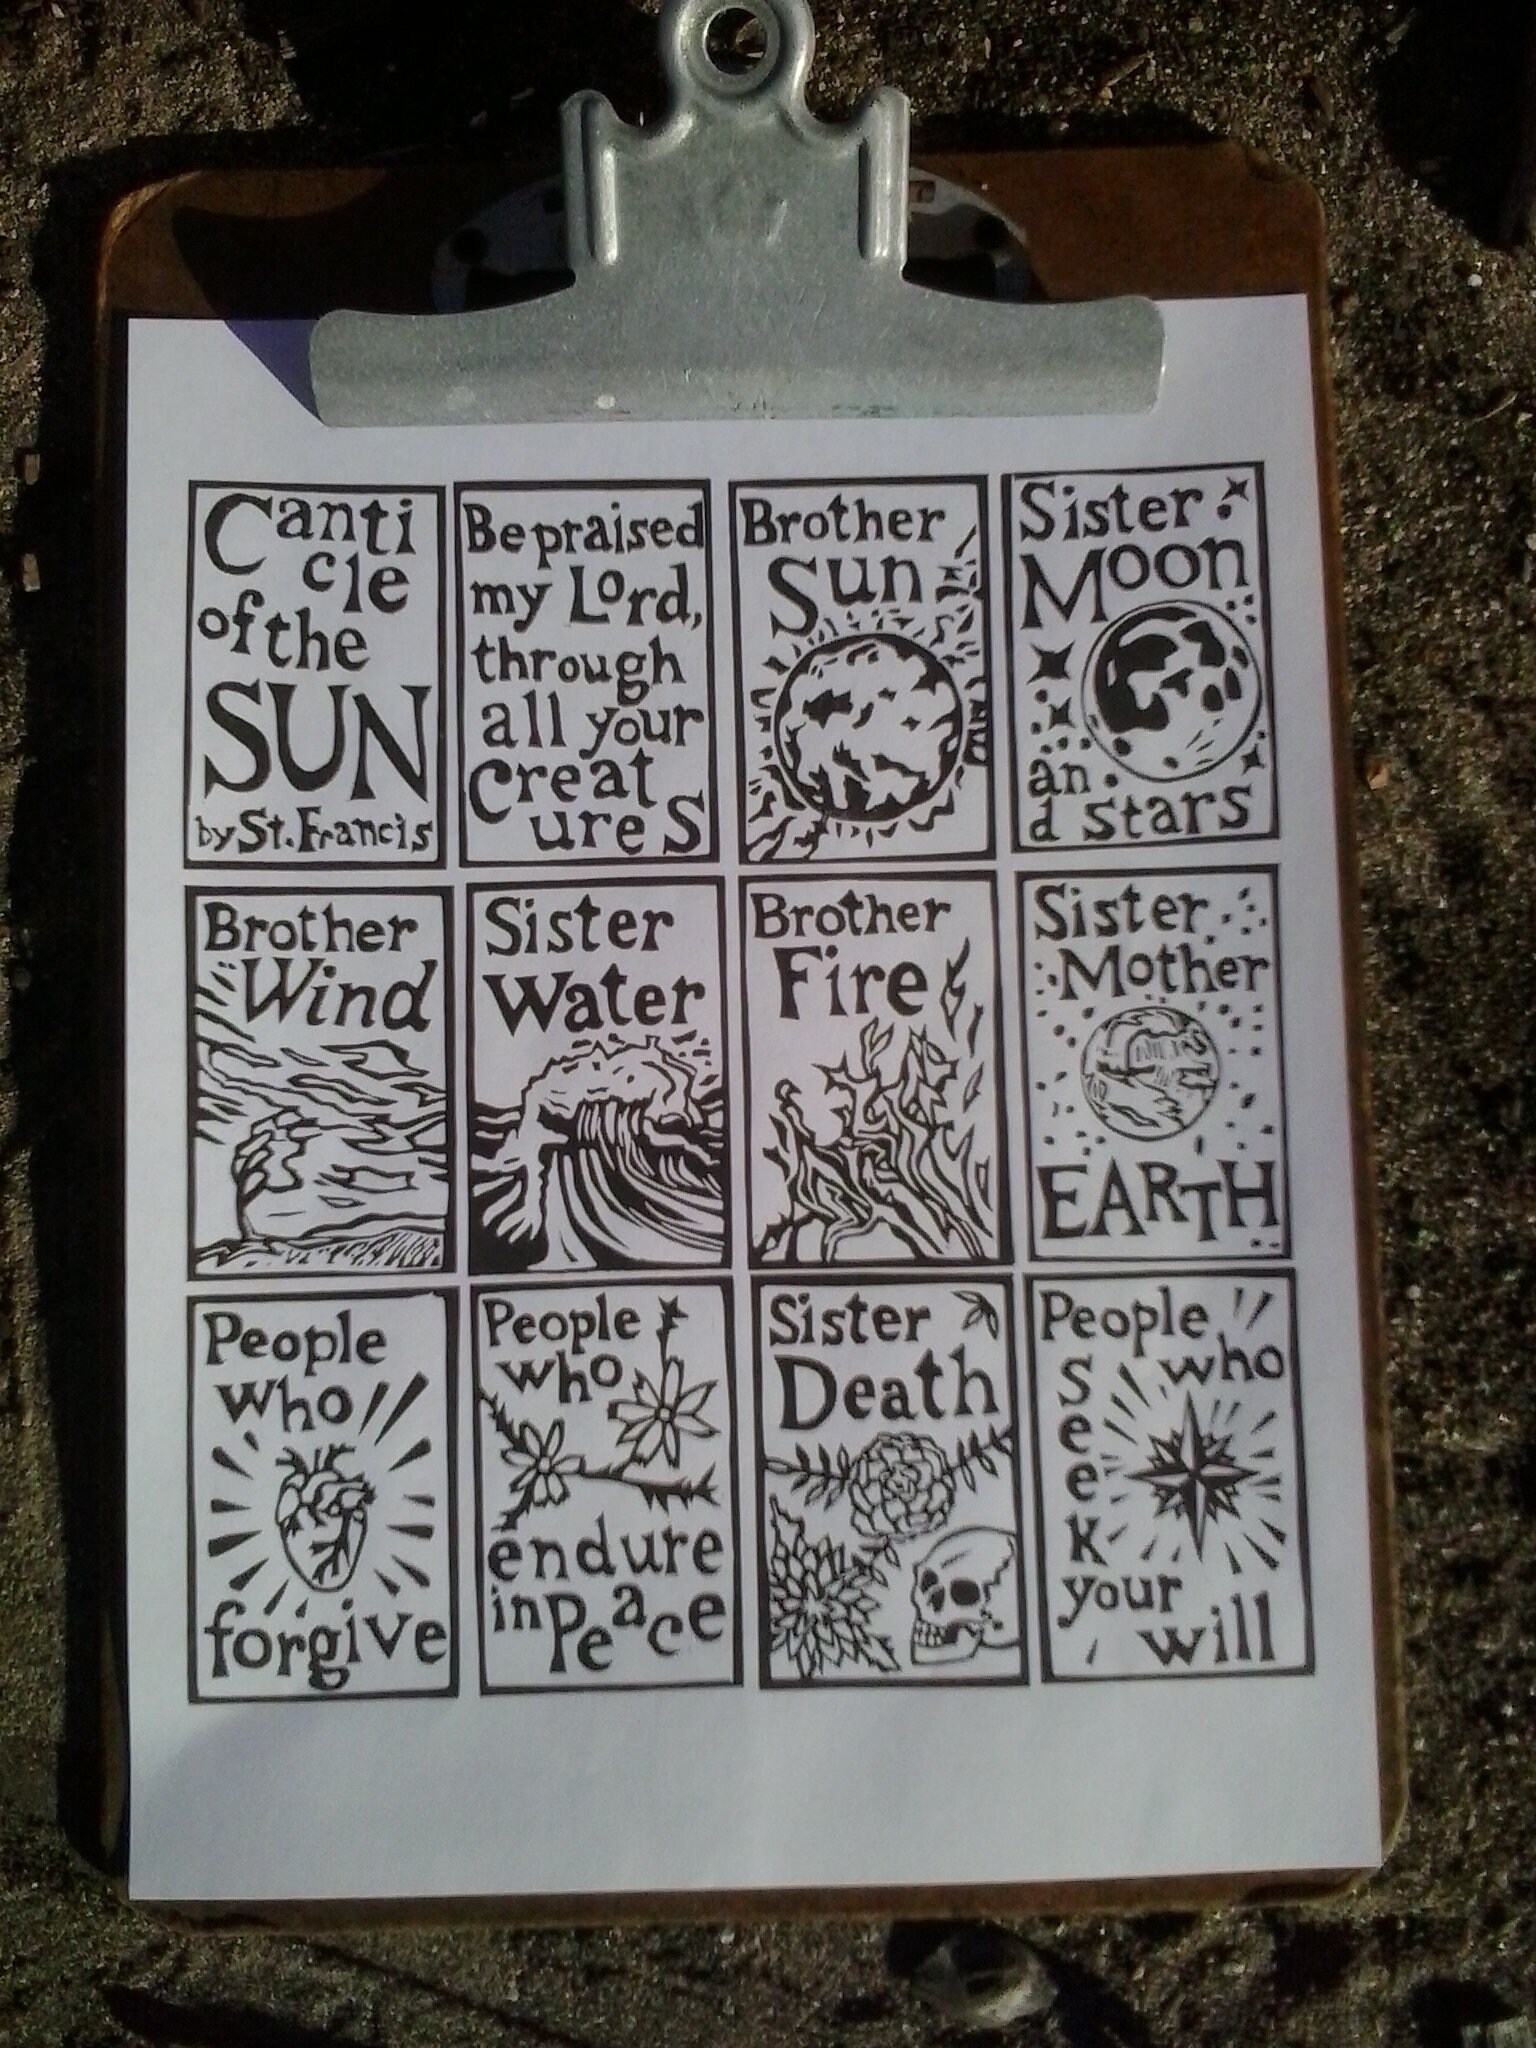 Canti
cle
of the
SUN
by St. Francis
Be praised
my Lord,
through
all your
Creat
ures
Brother
Sun
Sister
Moon
an
d stars
Brother
Wind
Sister
Water
Brother
Fire
Sister
Mother
EARTH
People
who
forgive
People
who
endure
in Peace
Sister
Death
People
who
Seek
your
will